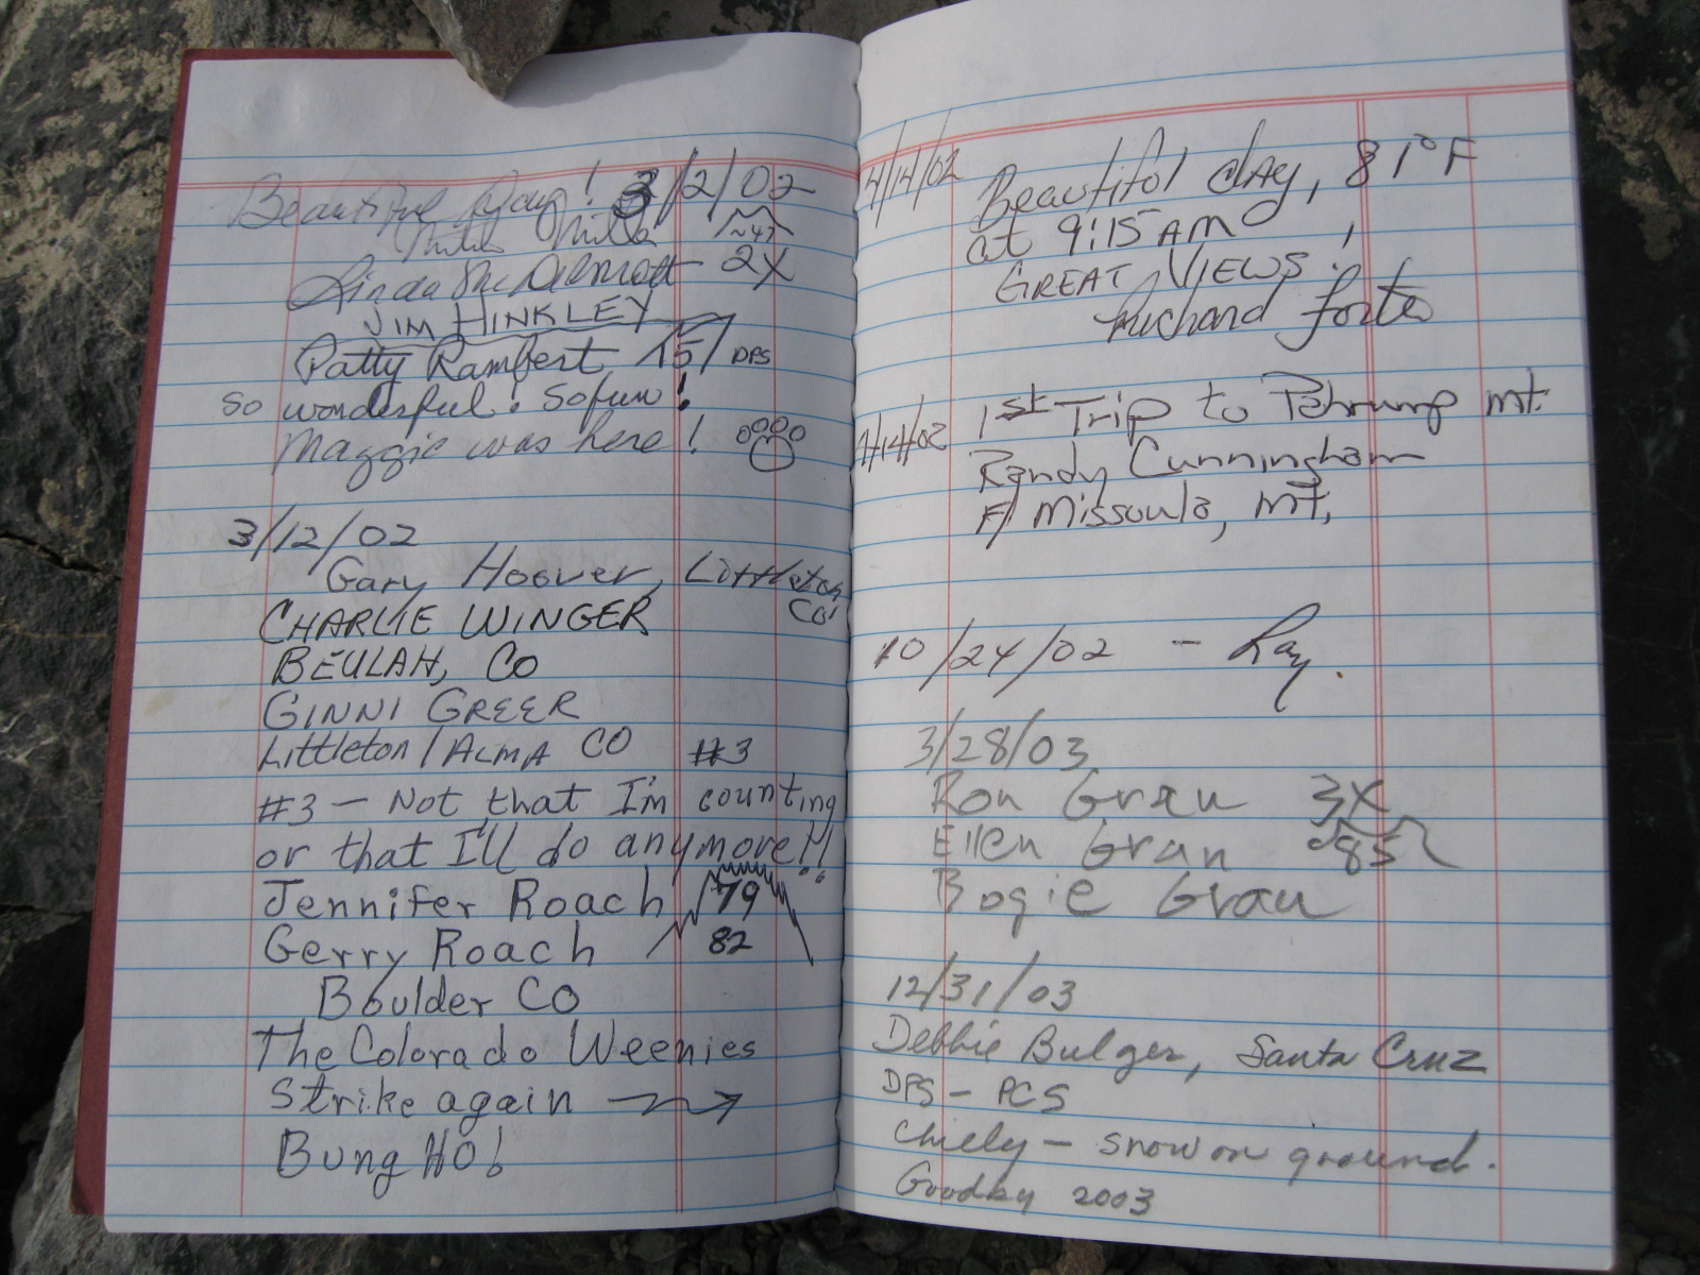 Beautiful Day! 3/2/02
~47
Linda McDermott 2X
JIM HINKLEY
Patty Rambert 15/ DPS
So wonderful! So fun!
Maggie was here!
3/12/02
Gary Hoover, Littleton
CO
CHARLIE WINGER
BEULAH, CO
GINNI GREER
Littleton/ALMA CO #3
#3 - Not that I'm counting
or that I'll do anymore!!
Jennifer Roach 79
Gerry Roach 82
Boulder CO
The Colorado Weenies
Strike again
Bung HO!
4/14/02
Beautiful dAy, 81°F
at 9:15 AM
GREAT VIEWS!
Richard
4/14/02 1st Trip to Pahrump mt.
Randy Cunningham
Missoula, mt,
10/24/02 - Ray.
3/28/03
Ron Grau 3X
Ellen Grau 85
Bogie Grau
12/31/03
Debbie Bulger, Santa Cruz
DPS - PCS
Chilly - snow on ground.
Goodby 2003